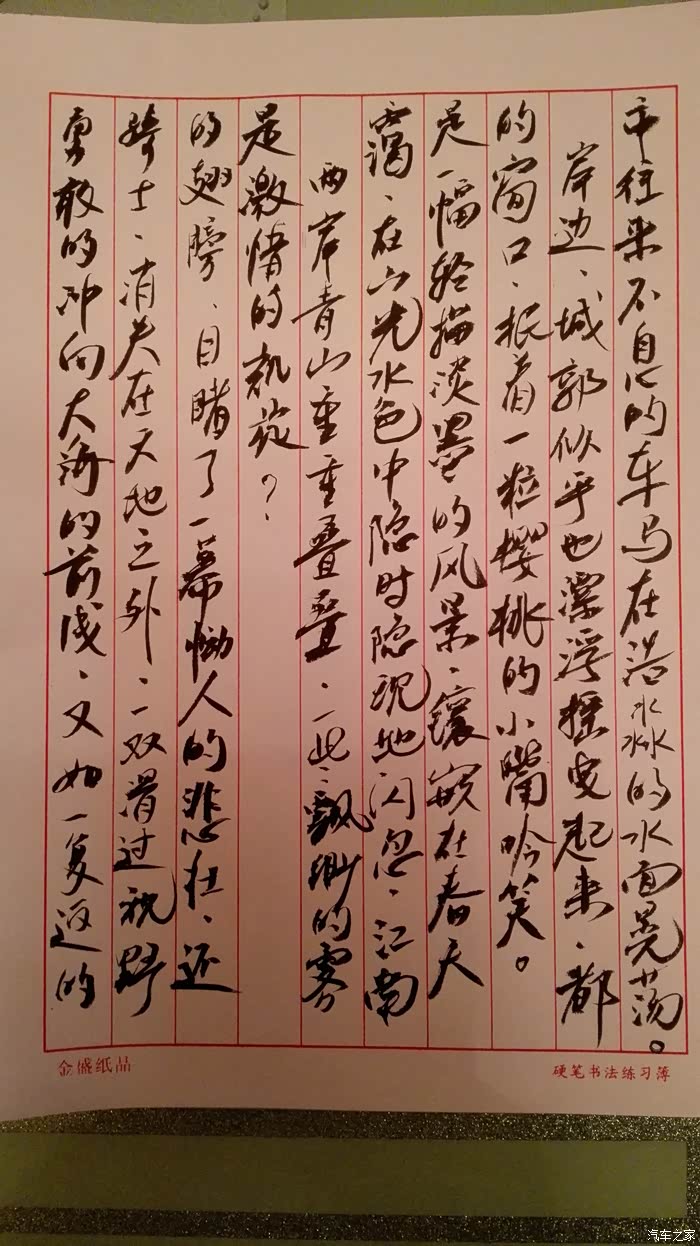 勇敢的冲向大海的前浅、又如一复返的
骑士、消失在天地之外、一双滑过视野
的翅膀、目睹了一幕恸人的悲壮、还
是激情的执着？
两岸青山重重叠叠、一些飘渺的雾
霭、在山光水色中隐时隐现地闪忽、江南
是一幅轻描淡墨的风景、镶嵌在春天
的窗口、抿着一粒樱桃的小嘴吟笑。
岸边、城郭似乎也漂浮摇曳起来、都
市往来不息的车马在浩淼的水面晃荡。
金盛纸品
硬笔书法练习薄
汽车之家